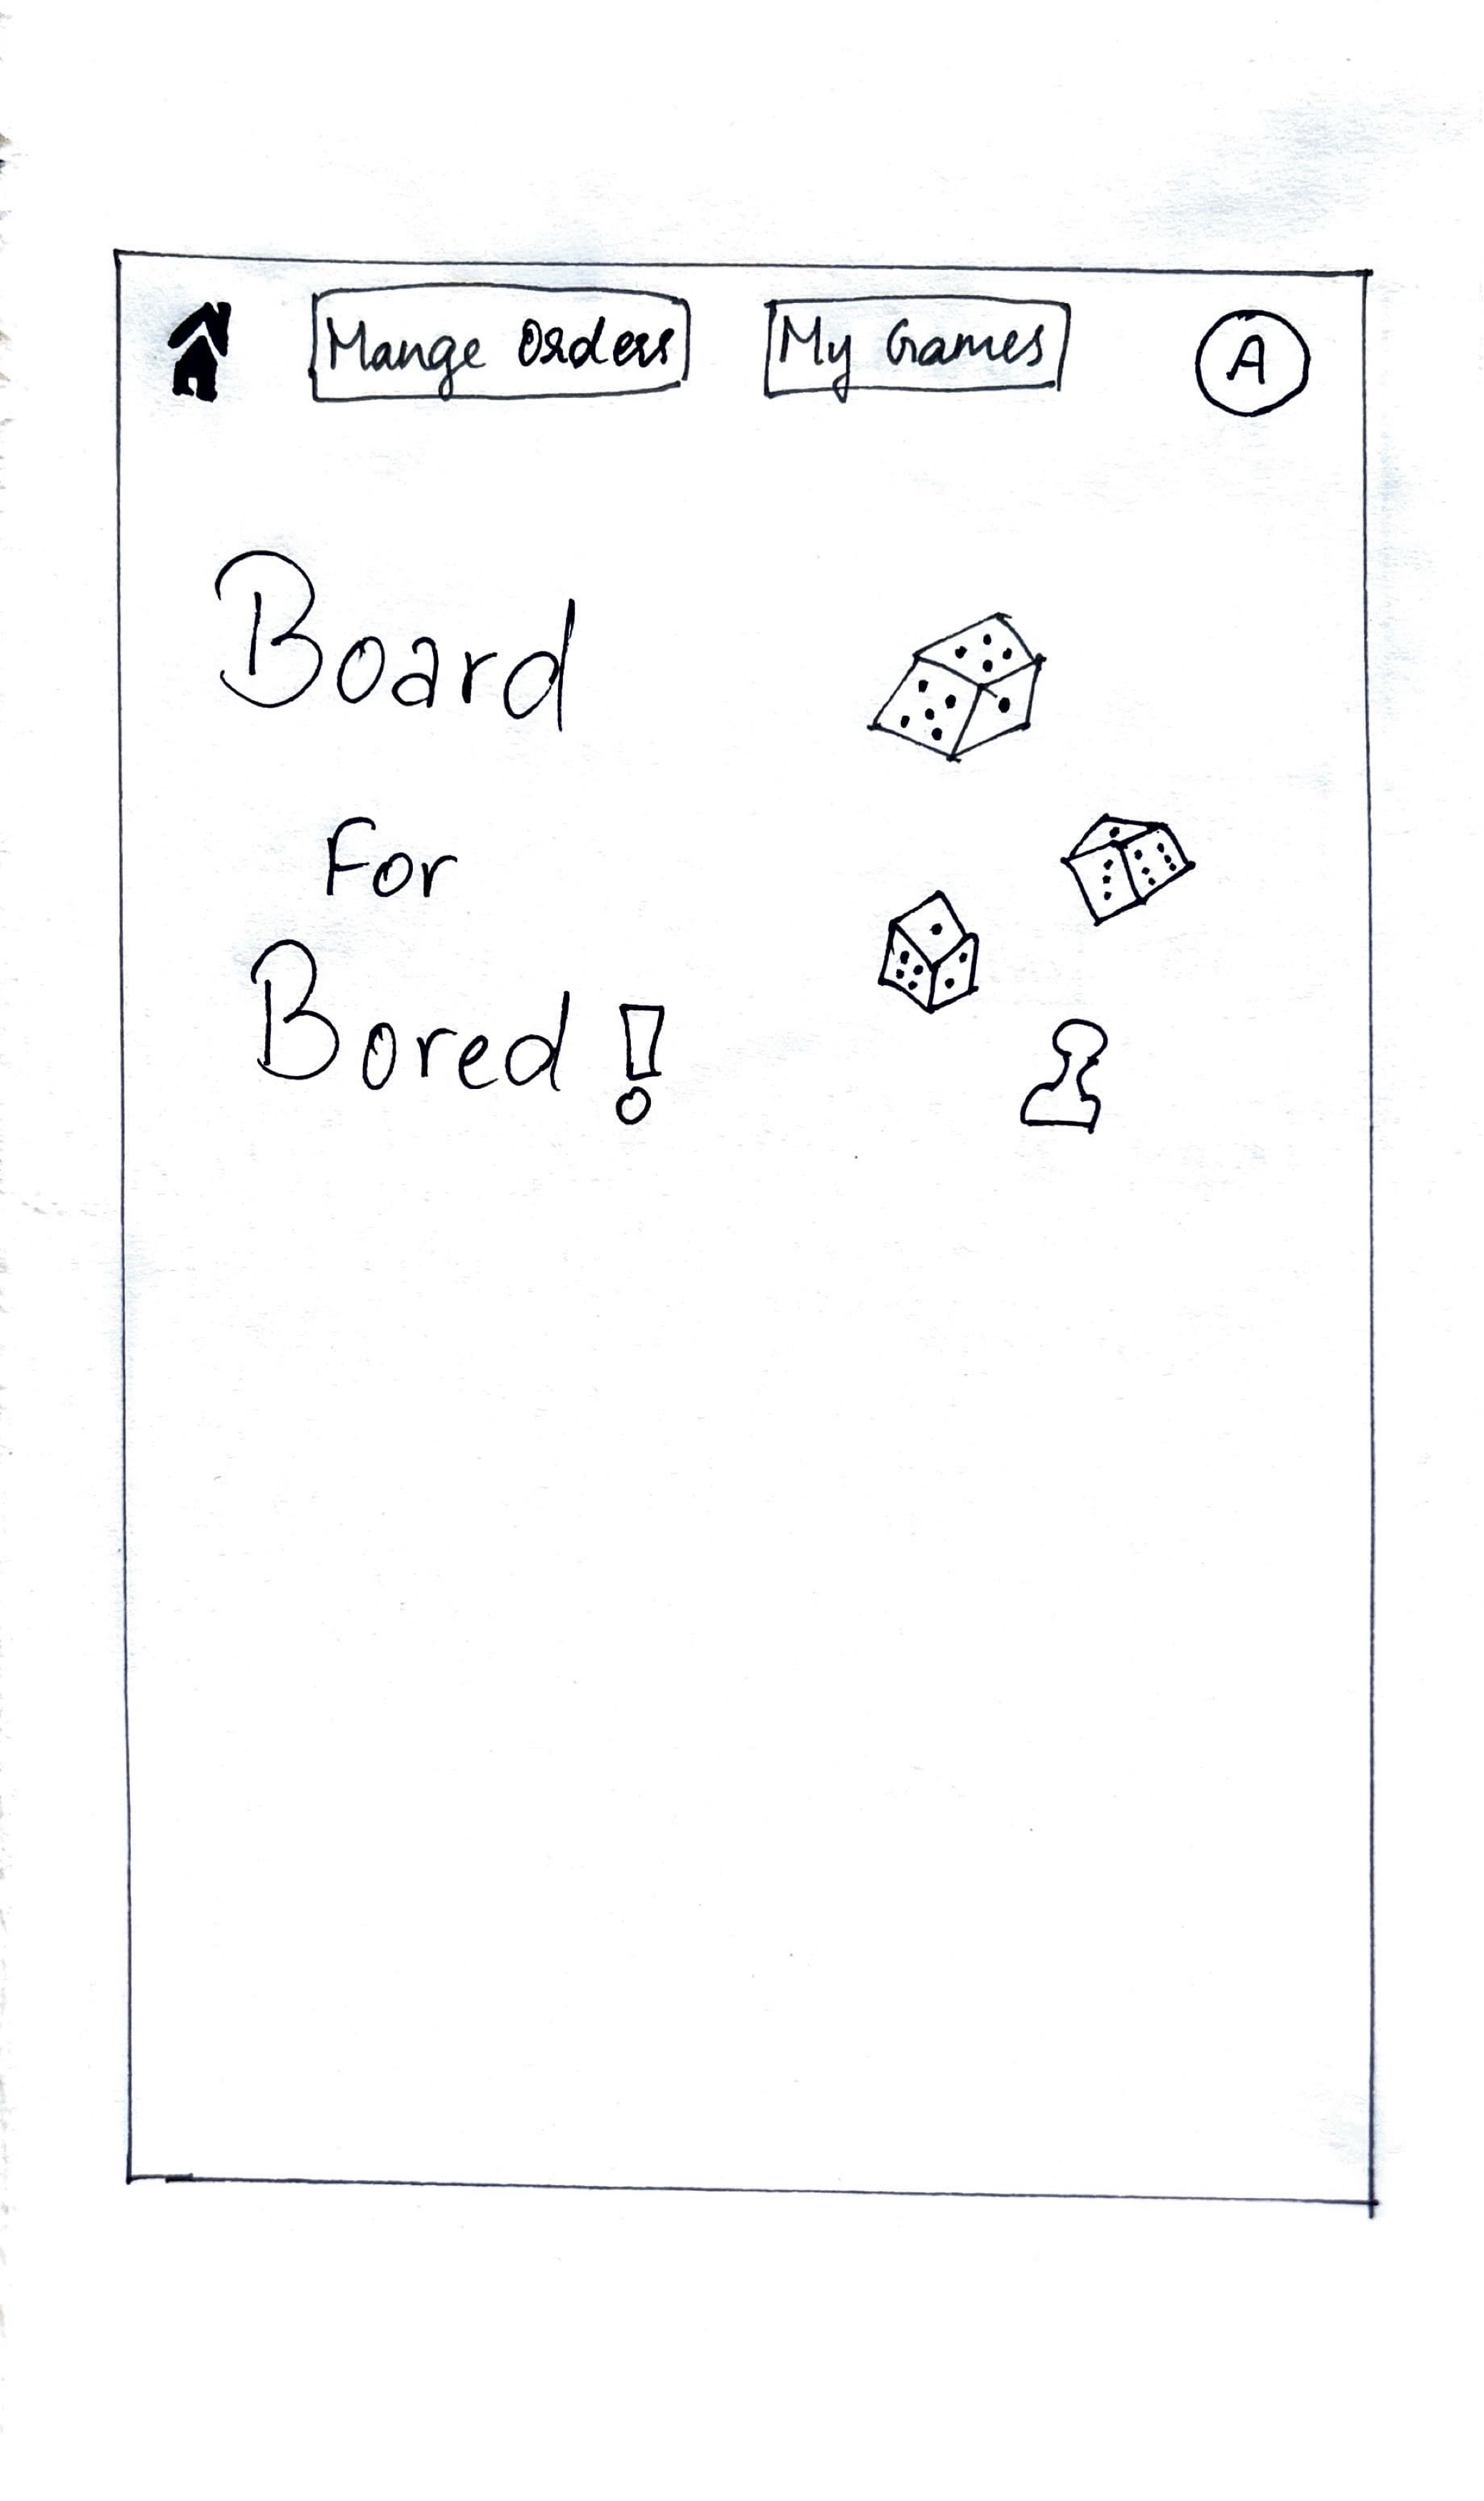 Mange Orders
My Games
A
Board
For
Bored!